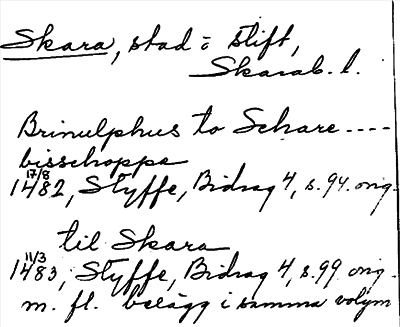 Skara, stad o stift,
Skarab. l.
Brinulphus to Schare ----
bisschoppe
17/8
1482, Styffe, Bidrag 4, s. 94. orig.
til Skara
11/3
1483, Styffe, Bidrag 4, s. 99 orig.
m. fl. belägg i samma volym